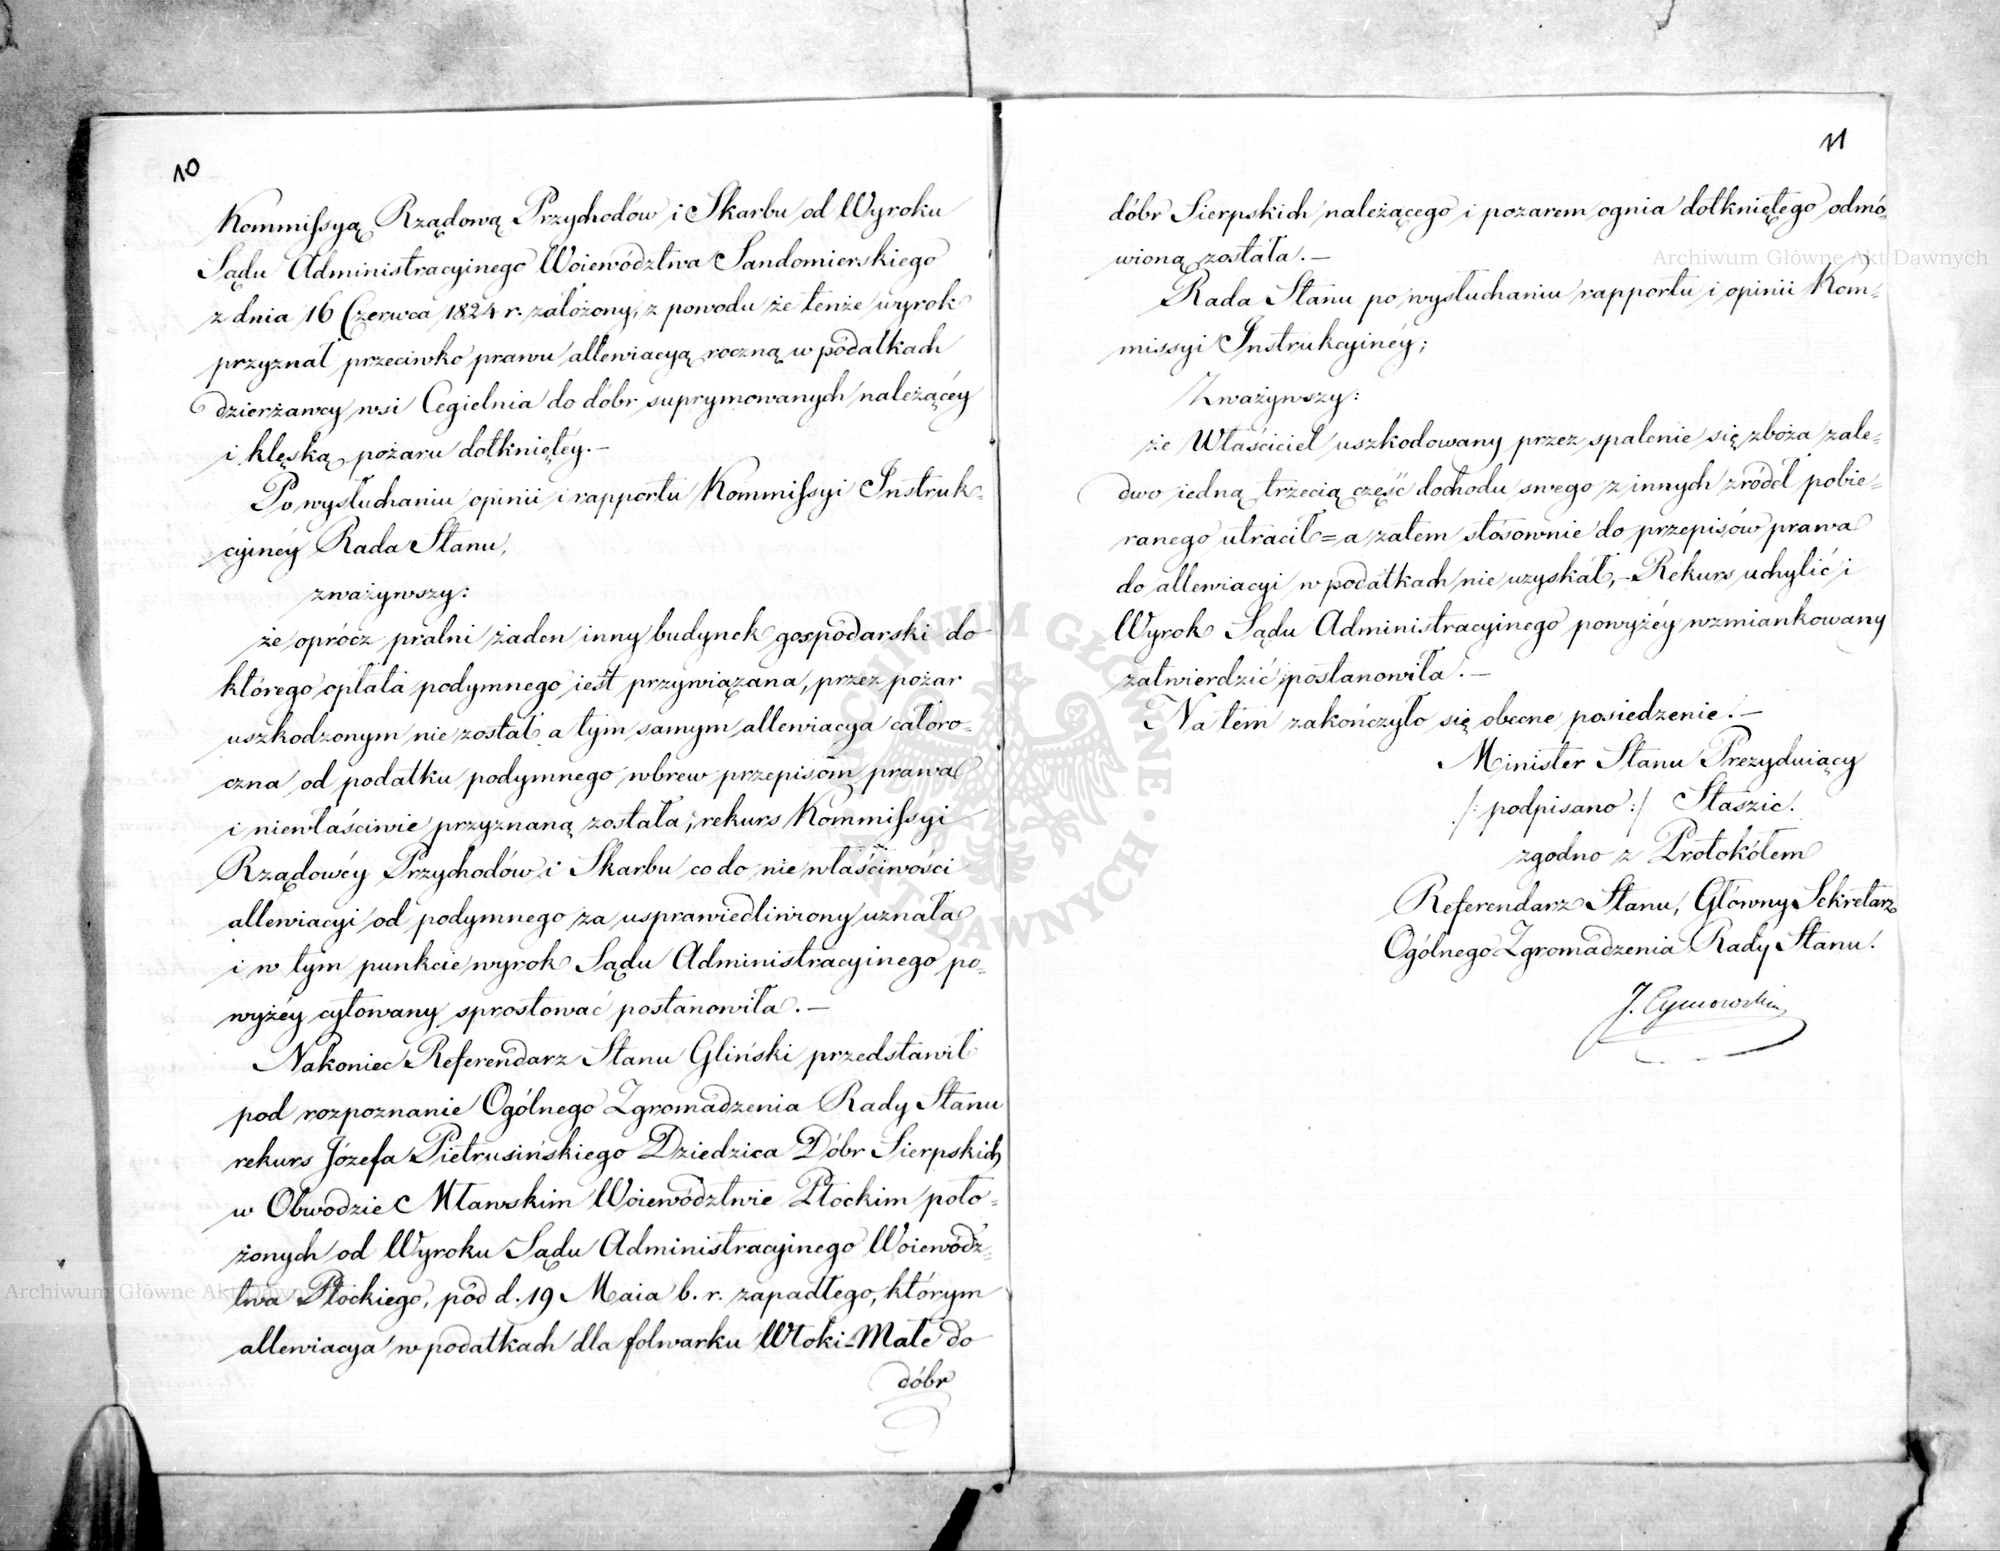 10
Kommissyą Rządową Przychodów i Skarbu od Wyroku
Sądu Administracyinego Woiewództwa Sandomierskiego
z dnia 16 Czerwca 1824 r. założony, z powodu że tenże wyrok
przyznał przeciwko prawu allewiacyą roczną w podatkach
dzierżawcy wsi Cegielnia do dóbr suprymowanych należącéy
i klęską pożaru dotkniętéy.—
Po wysłuchaniu opinii i rapportu Kommissyi Instruk-
cyinéy Rada Stanu,
zważywszy:
że oprócz pralni żaden inny budynek gospodarski do
którego opłata podymnego iest przywiązana, przez pożar
uszkodzonym nie został a tym samym allewiacya całoro-
czna od podatku podymnego wbrew przepisom prawa
i niewłaściwie przyznaną została; rekurs Kommissyi
Rządowéy Przychodów i Skarbu co do niewłaściwości
allewiacyi od podymnego za usprawiedliwiony uznała
i w tym punkcie wyrok Sądu Administracyinego po-
wyżéy cytowany sprostować postanowiła.—
Nakoniec Referendarz Stanu Gliński przedstawił
pod rozpoznanie Ogólnego Zgromadzenia Rady Stanu
rekurs Józefa Pietrusińskiego Dziedzica Dóbr Sierpskich
w Obwodzie Mławskim Woiewództwie Płockim poło-
żonych od Wyroku Sądu Administracyinego Woiewódz-
twa Płockiego, pod d. 19 Maia b. r. zapadłego, którym
allewiacya w podatkach dla folwarku Włoki-Małe do
dóbr
11
dóbr Sierpskich należącego i pożarem ognia dotkniętego odmó-
wioną została.—
Rada Stanu po wysłuchaniu rapportu i opinii Kom-
missyi Instrukcyinéy;
Zważywszy:
że Właściciel uszkodowany przez spalenie się zboża zale-
dwo iedną trzecią część dochodu swego z innych źródeł pobie-
ranego utracił = a zatem stósownie do przepisów prawa
do allewiacyi w podatkach nie uzyskał,— Rekurs uchylić i
Wyrok Sądu Administracyinego powyżéy wzmiankowany
zatwierdzić postanowiła.—
Na tém zakończyło się obecne posiedzenie.—
Minister Stanu Prezyduiący
/: podpisano :/ Staszic.
zgodno z Protokółem
Referendarz Stanu, Główny Sekretarz
Ogólnego Zgromadzenia Rady Stanu.
J. Tymowski
Archiwum Główne Akt Dawnych
Archiwum Główne Akt Dawnych
ARCHIWUM GŁÓWNE AKT DAWNYCH